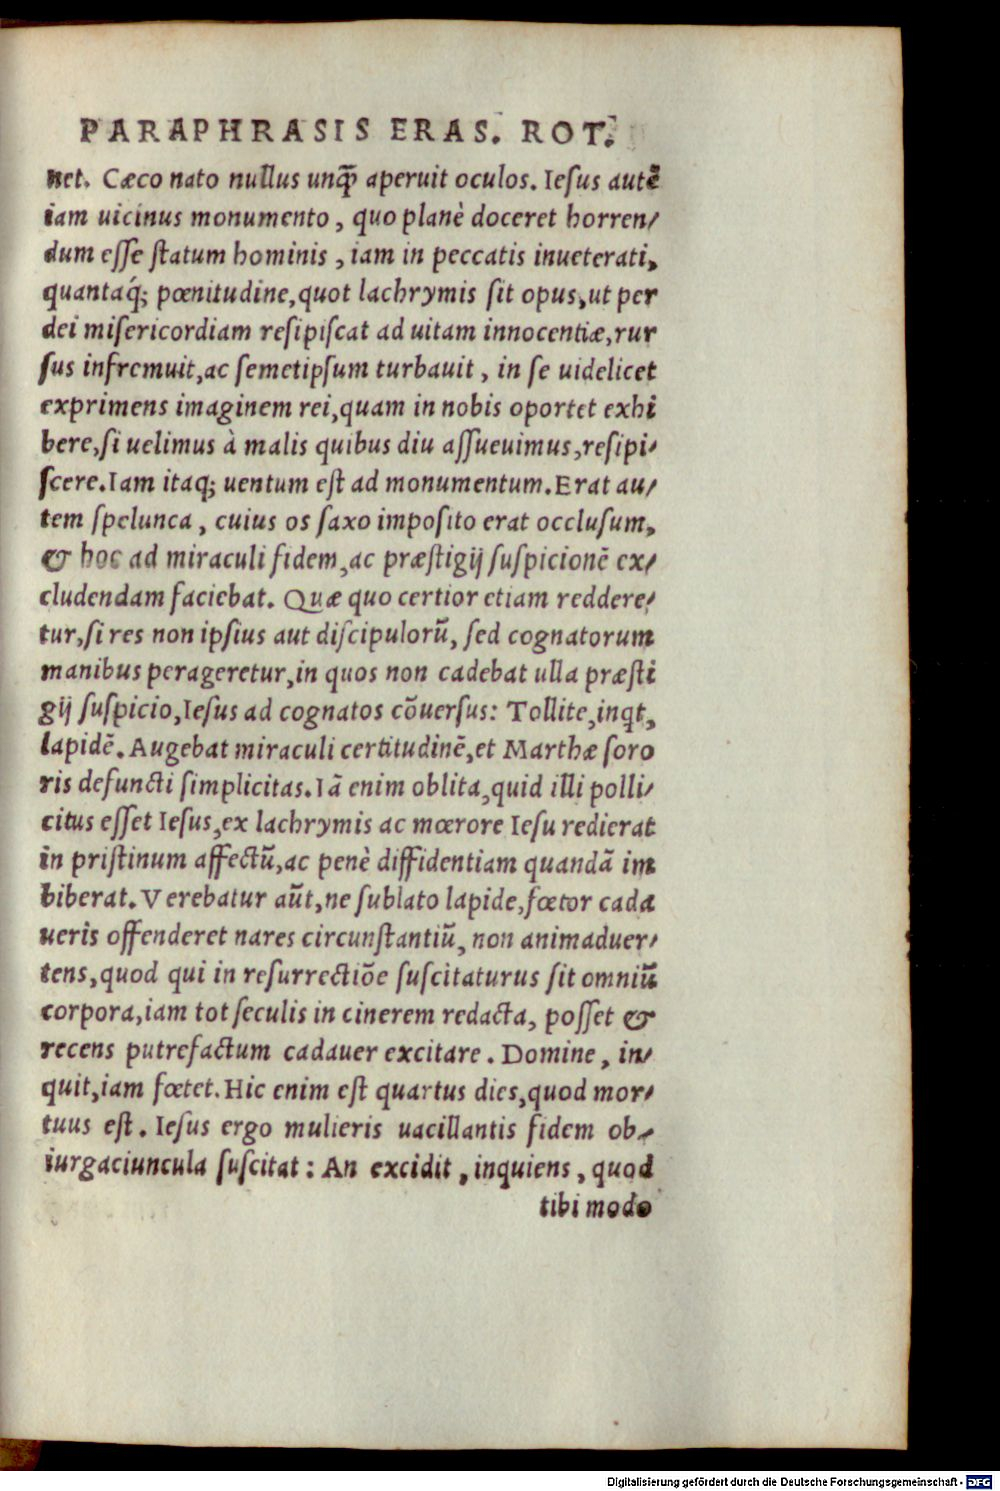 PARAPHRASIS ERAS. ROT.
net. Cæco nato nullus unq̃ aperuit oculos. Iesus autē
iam uicinus monumento, quo planè doceret horren/
dum esse statum hominis, iam in peccatis inueterati,
quantaq́; pœnitudine, quot lachrymis sit opus, ut per
dei misericordiam resipiscat ad uitam innocentiæ, rur
sus infremuit, ac semetipsum turbauit, in se uidelicet
exprimens imaginem rei, quam in nobis oportet exhi
bere, si uelimus à malis quibus diu assueuimus, resipi/
scere. Iam itaq; uentum est ad monumentum. Erat au/
tem spelunca, cuius os saxo imposito erat occlusum,
& hoc ad miraculi fidem, ac præstigij suspicionē ex/
cludendam faciebat. Quæ quo certior etiam reddere/
tur, si res non ipsius aut discipulorū, sed cognatorum
manibus perageretur, in quos non cadebat ulla præsti
gij suspicio, Iesus ad cognatos cōuersus: Tollite, inqt,
lapidē. Augebat miraculi certitudinē, et Marthæ soro
ris defuncti simplicitas. Iā enim oblita, quid illi polli/
citus esset Iesus, ex lachrymis ac mœrore Iesu redierat
in pristinum affectū, ac penè diffidentiam quandā im
biberat. Verebatur aūt, ne sublato lapide, fœtor cada
ueris offenderet nares circunstantiū, non animaduer/
tens, quod qui in resurrectiōe suscitaturus sit omniū
corpora, iam tot seculis in cinerem redacta, posset &
recens putrefactum cadauer excitare. Domine, in/
quit, iam fœtet. Hic enim est quartus dies, quod mor/
tuus est. Iesus ergo mulieris uacillantis fidem ob/
iurgaciuncula suscitat: An excidit, inquiens, quod
tibi modo
Digitalisierung gefördert durch die Deutsche Forschungsgemeinschaft - DFG